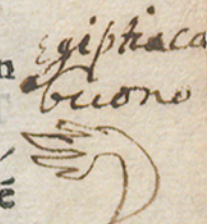 Egiptiaca
buono
n
é